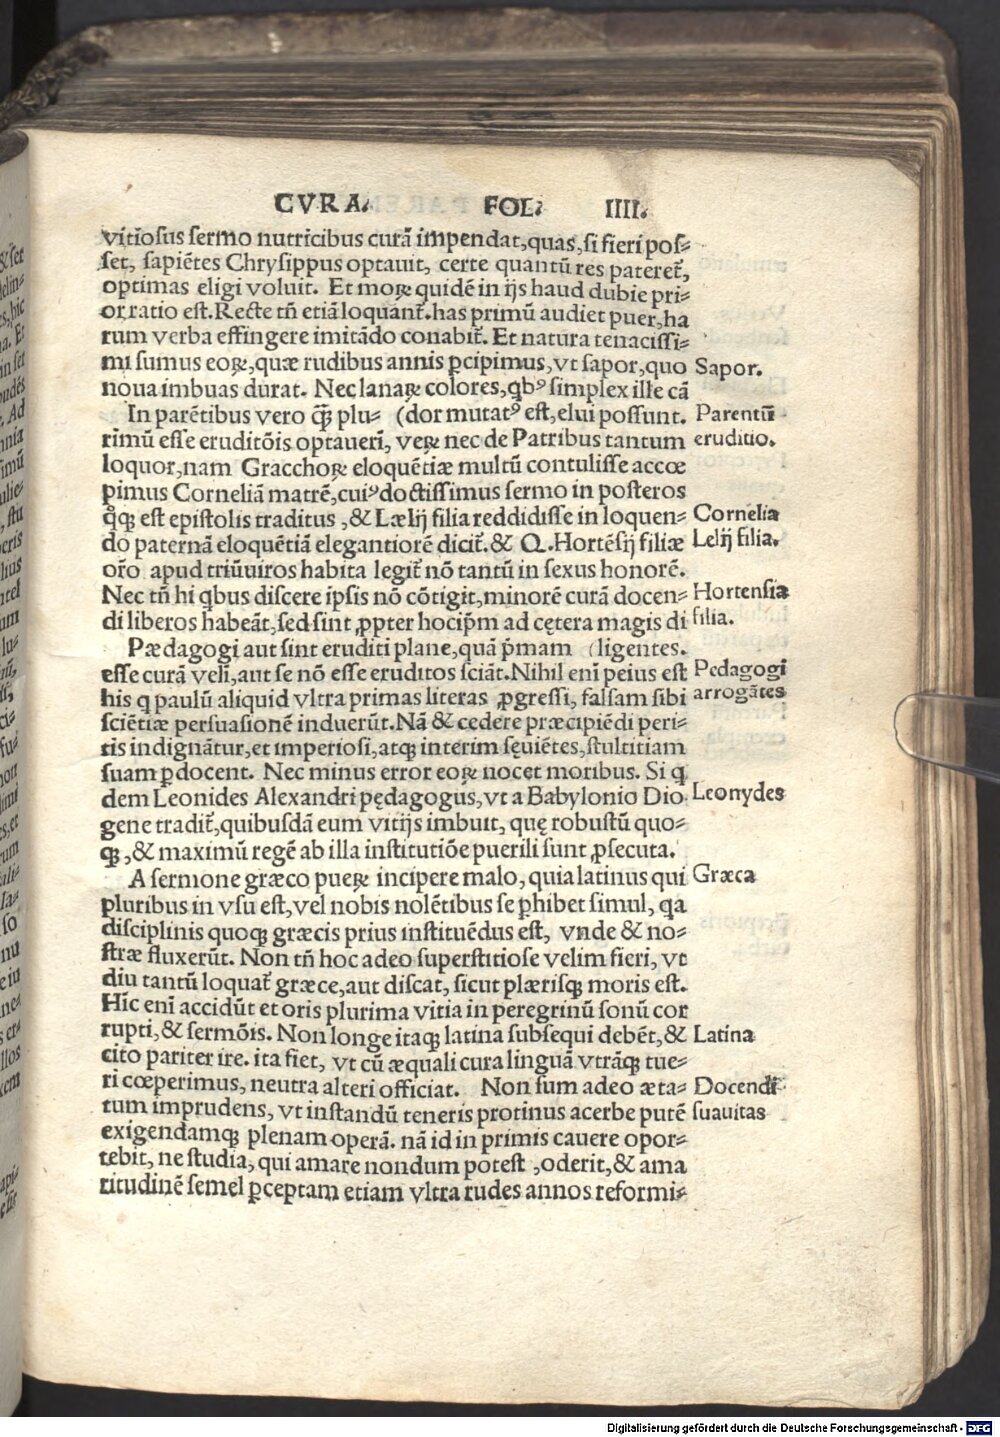 CVRA. FOL. IIII.
vitiosus sermo nutricibus curā impendat,quas,si fieri pos⸗
set, sapiētes Chrysippus optauit, certe quantū res pateret᷑,
optimas eligi voluit. Et moꝝ quidē in ijs haud dubie pri⸗
or ratio est. Recte tn̄ etiā loquant᷑. has primū audiet puer,ha
rum verba effingere imitādo conabit᷑. Et natura tenacissi⸗
mi sumus eoꝝ,quæ rudibus annis ꝑcipimus,vt sapor,quo Sapor.
noua imbuas durat. Nec lanaꝝ colores,qbꝰ simplex ille cā
In parētibus vero q̄ꝫ plu⸗ (dor mutatꝰ est,elui possunt. Parentū
rimū esse eruditōis optaueri᷑, veꝝ nec de Patribus tantum eruditio.
loquor,nam Gracchoꝝ eloquētiæ multū contulisse accœ
pimus Corneliā matrē,cuiꝰ doctissimus sermo in posteros
q̊qꝫ est epistolis traditus ,& Lælij filia reddidisse in loquen⸗ Cornelia
do paternā eloquētiā elegantiorē dicit᷑. & Q. Hortēsij filiæ Lelij filia.
or̄o apud triūuiros habita legit᷑ nō tantū in sexus honorē.
Nec tn̄ hi qbus discere ipsis nō cōtigit,minorē curā docen⸗ Hortensia
di liberos habeāt,sed sint ꝓpter hoc ip̄m ad cętera magis di filia.
Pædagogi aut sint eruditi plane,quā p̄mam (ligentes.
esse curā veli᷑,aut se nō esse eruditos sciāt. Nihil eni᷑ peius est Pedagogi
his q paulū aliquid vltra primas literas ꝓgressi, falsam sibi arrogātes
sciētiæ persuasionē induerūt. Nā & cedere præcipiēdi peri⸗
tis indignātur,et imperiosi,atqꝫ interim sęuiētes,stultitiam
suam ꝑdocent. Nec minus error eoꝝ nocet moribus. Si q
dem Leonides Alexandri pędagogus,vt a Babylonio Dio Leonydes
gene tradit᷑,quibusdā eum vitijs imbuit, quę robustū quo⸗
qꝫ ,& maximū regē ab illa institutiōe puerili sunt ꝓsecuta.
A sermone græco pueꝝ incipere malo,quia latinus qui Græca
pluribus in vsu est,vel nobis nolētibus se ꝑhibet simul, qa
disciplinis quoqꝫ græcis prius instituēdus est, vnde & no⸗
stræ fluxerūt. Non tn̄ hoc adeo superstitiose velim fieri, vt
diu tantū loquat᷑ græce,aut discat, sicut plærisqꝫ moris est.
Hi᷑c eni᷑ accidūt et oris plurima vitia in peregrinū sonū cor
rupti,& sermōis. Non longe itaqꝫ latina subsequi debēt,& Latina
cito pariter ire. ita fiet, vt cū æquali cura linguā vtrāqꝫ tue⸗
ri cœperimus, neutra alteri officiat. Non sum adeo æta⸗ Docendi
tum imprudens, vt instandū teneris protinus acerbe putē suauitas
exigendamqꝫ plenam operā. nā id in primis cauere opor⸗
tebit, ne studia, qui amare nondum potest ,oderit,& ama
ritudinē semel ꝑceptam etiam vltra rudes annos reformi⸗
Digitalisierung gefördert durch die Deutsche Forschungsgemeinschaft - DFG